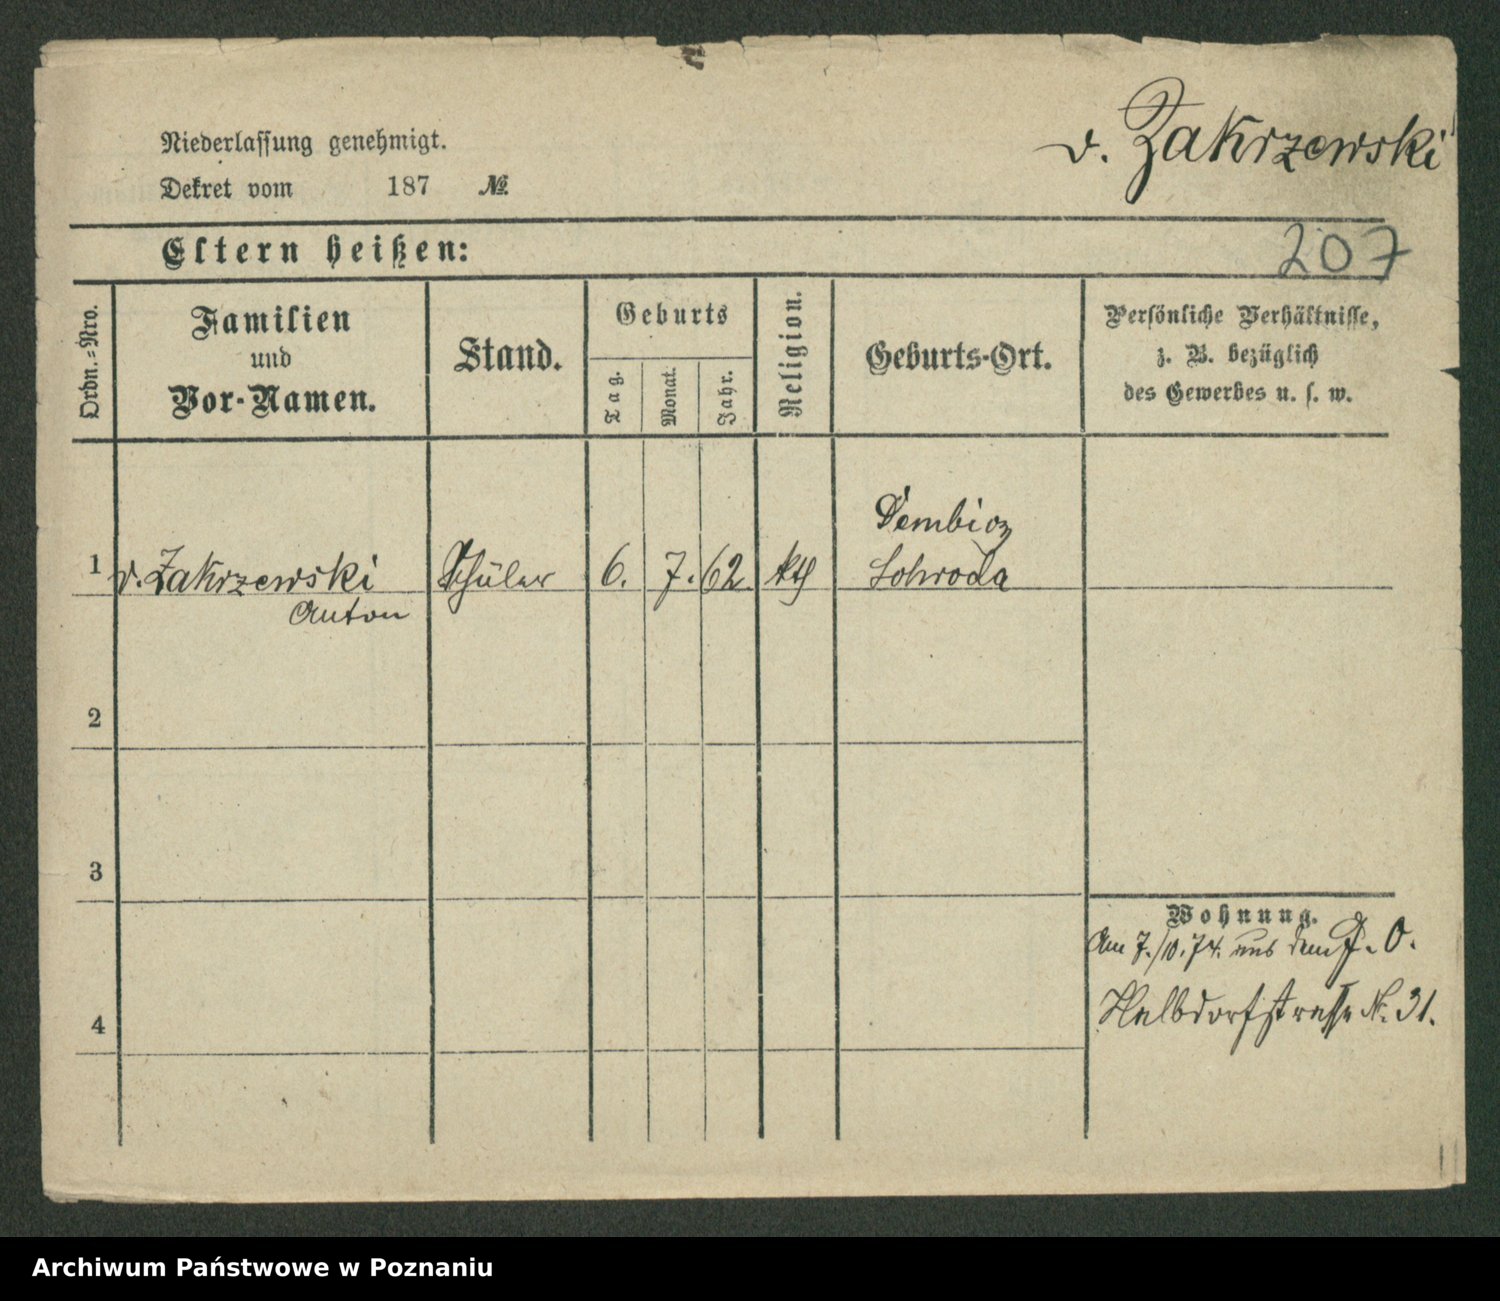 v. Zakrzewski
Niederlassung genehmigt.
Dekret vom 187 №
207
Eltern heißen:
Ordn.-Nro.
Familien
und
Vor-Namen.
Stand.
Geburts
Tag.
Monat.
Jahr.
Religion.
Geburts-Ort.
Persönliche Verhältnisse,
z. B. bezüglich
des Gewerbes u. s. w.
1 v. Zakrzewski Schüler 6. 7. 62 kth
Anton
Dembicz
Schroda
2
3
4
Wohnung.
Am 7./10.74. aus dem P. O.
Halbdorfstrasse N. 31.
Archiwum Państwowe w Poznaniu